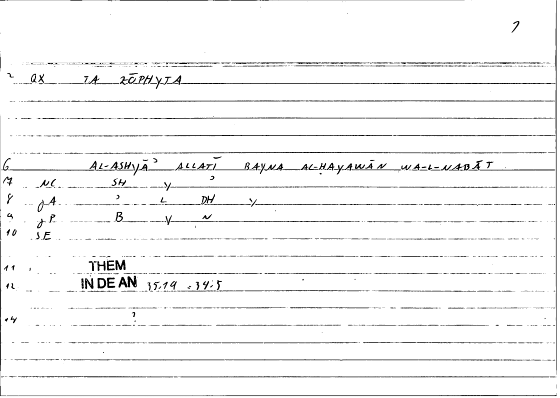 7
2 QX TA ZŌPHYTA
6 AL-ASHYĀʾ ALLATĪ BAYNA AL-ḤAYAWĀN WA-L-NABĀT
7 NC SH Y ʾ
8 gA ʾ L DH Y
9 gP B Y N
10 SE
11 THEM
12 IN DE AN 35.19 .34.5
14 ʾ